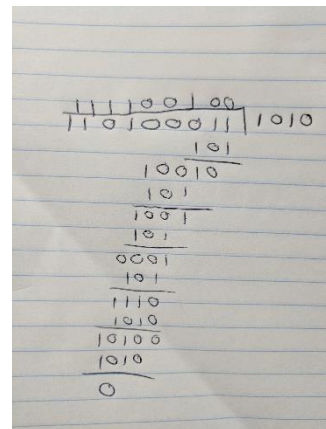 1111001 00
1101000011 1010
101
10010
101
1001
101
0001
101
1110
1010
10100
1010
0